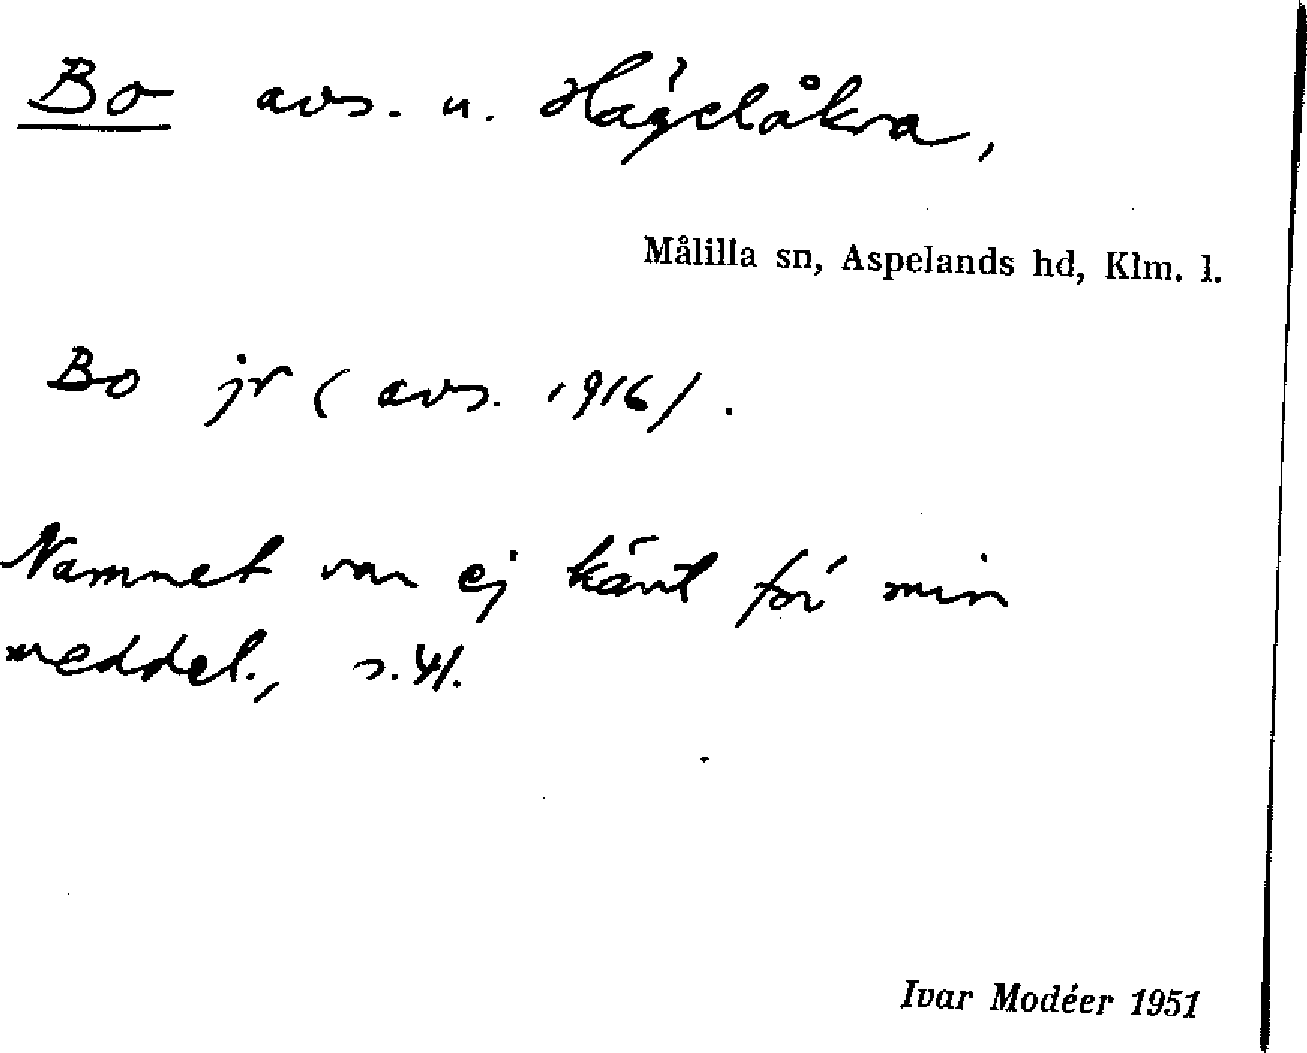 Bo avs. u. Hägelåkra,
Målilla sn, Aspelands hd, Klm. l.
Bo jr (avs. 1916).
Namnet var ej känt för min
meddel., s. 41.
Ivar Modéer 1951